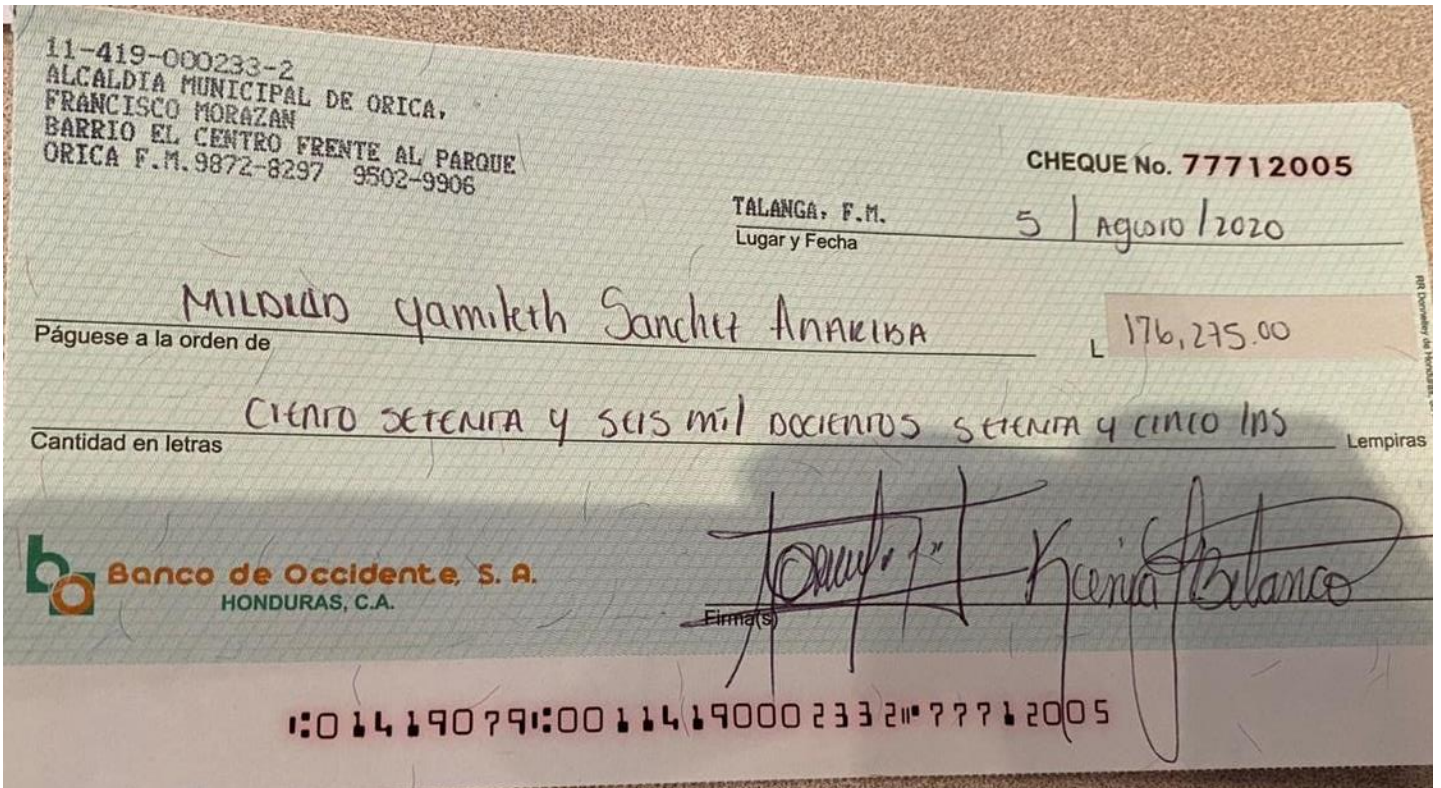 11-419-000233-2
ALCALDIA MUNICIPAL DE ORICA,
FRANCISCO MORAZAN
BARRIO EL CENTRO FRENTE AL PARQUE
ORICA F.M.9872-8297 9502-9906
CHEQUE No. 77712005
TALANGA, F.M. 5 / AGOSTO / 2020
Lugar y Fecha
Yamileth Sanchez ANARIBA
Páguese a la orden de
L 176,275.00
CIENTO SETENTA Y SEIS mil DOCIENTOS SETENTA Y CINCO lps
Cantidad en letras
Lempiras
Banco de Occidente, S. A.
HONDURAS, C.A.
Firma(s)
⑆01419079⑆00114190002332⑈77712005